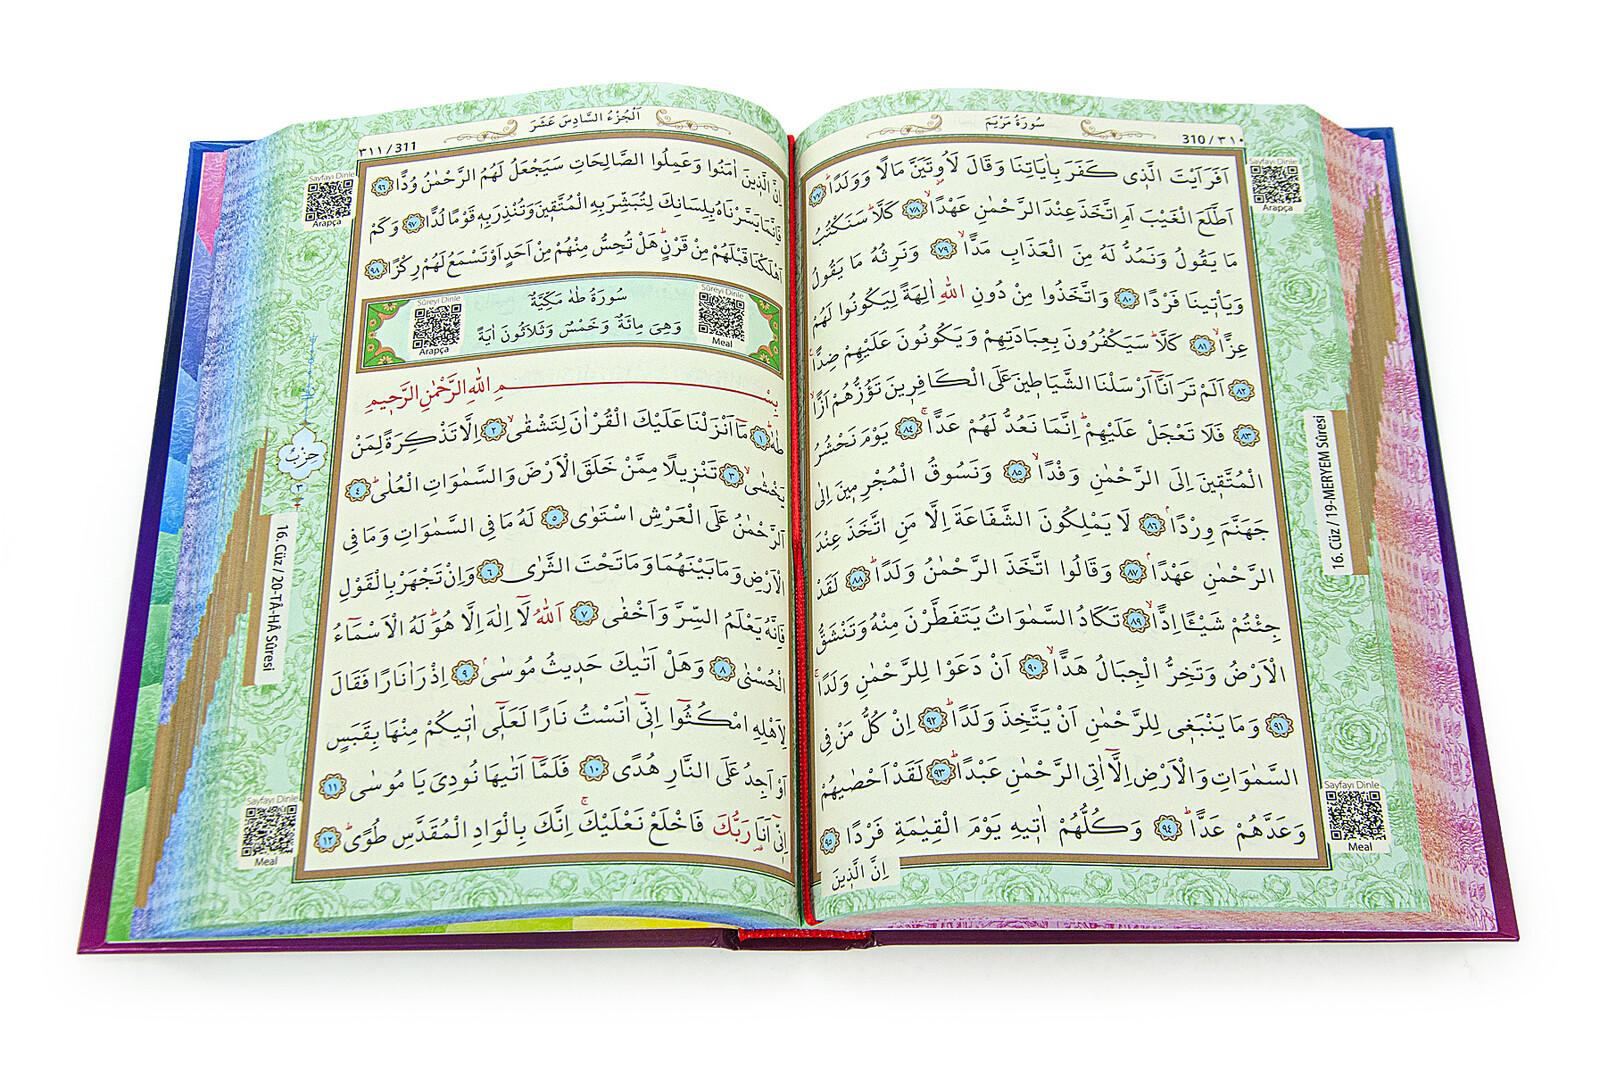 سُورَةُ مَرْيَمَ
310 / ٣١٠
Sayfayı Dinle
Arapça
اَفَرَاَيْتَ الَّذ۪ي كَفَرَ بِاٰيَاتِنَا وَقَالَ لَاُو۫تَيَنَّ مَالًا وَوَلَدًاۜ ﴿٧٧﴾
اَطَّلَعَ الْغَيْبَ اَمِ اتَّخَذَ عِنْدَ الرَّحْمٰنِ عَهْدًاۙ ﴿٧٨﴾ كَلَّاۜ سَنَكْتُبُ
مَا يَقُولُ وَنَمُدُّ لَهُ مِنَ الْعَذَابِ مَدًّاۙ ﴿٧٩﴾ وَنَرِثُهُ مَا يَقُولُ
وَيَأْت۪ينَا فَرْدًا ﴿٨٠﴾ وَاتَّخَذُوا مِنْ دُونِ اللّٰهِ اٰلِهَةً لِيَكُونُوا لَهُمْ
عِزًّاۙ ﴿٨١﴾ كَلَّاۜ سَيَكْفُرُونَ بِعِبَادَتِهِمْ وَيَكُونُونَ عَلَيْهِمْ ضِدًّا۟
﴿٨٢﴾ اَلَمْ تَرَ اَنَّٓا اَرْسَلْنَا الشَّيَاط۪ينَ عَلَى الْكَافِر۪ينَ تَؤُزُّهُمْ اَزًّاۙ
﴿٨٣﴾ فَلَا تَعْجَلْ عَلَيْهِمْۜ اِنَّمَا نَعُدُّ لَهُمْ عَدًّاۚ ﴿٨٤﴾ يَوْمَ نَحْشُرُ
الْمُتَّق۪ينَ اِلَى الرَّحْمٰنِ وَفْدًاۙ ﴿٨٥﴾ وَنَسُوقُ الْمُجْرِم۪ينَ اِلٰى
جَهَنَّمَ وِرْدًاۢ ﴿٨٦﴾ لَا يَمْلِكُونَ الشَّفَاعَةَ اِلَّا مَنِ اتَّخَذَ عِنْدَ
الرَّحْمٰنِ عَهْدًاۢ ﴿٨٧﴾ وَقَالُوا اتَّخَذَ الرَّحْمٰنُ وَلَدًاۜ ﴿٨٨﴾ لَقَدْ
جِئْتُمْ شَيْـًٔا اِدًّاۙ ﴿٨٩﴾ تَكَادُ السَّمٰوَاتُ يَتَفَطَّرْنَ مِنْهُ وَتَنْشَقُّ
الْاَرْضُ وَتَخِرُّ الْجِبَالُ هَدًّاۙ ﴿٩٠﴾ اَنْ دَعَوْا لِلرَّحْمٰنِ وَلَدًاۚ
﴿٩١﴾ وَمَا يَنْبَغ۪ي لِلرَّحْمٰنِ اَنْ يَتَّخِذَ وَلَدًاۜ ﴿٩٢﴾ اِنْ كُلُّ مَنْ فِي
السَّمٰوَاتِ وَالْاَرْضِ اِلَّٓا اٰتِي الرَّحْمٰنِ عَبْدًاۜ ﴿٩٣﴾ لَقَدْ اَحْصٰيهُمْ
وَعَدَّهُمْ عَدًّاۜ ﴿٩٤﴾ وَكُلُّهُمْ اٰت۪يهِ يَوْمَ الْقِيٰمَةِ فَرْدًا ﴿٩٥﴾
اِنَّ الَّذ۪ينَ
16. Cüz / 19-MERYEM Sûresi
Sayfayı Dinle
Meal
اَلْجُزْءُ السَّادِسَ عَشَرَ
٣١١ / 311
Sayfayı Dinle
Arapça
اِنَّ الَّذ۪ينَ اٰمَنُوا وَعَمِلُوا الصَّالِحَاتِ سَيَجْعَلُ لَهُمُ الرَّحْمٰنُ وُدًّا ﴿٩٦﴾
فَاِنَّمَا يَسَّرْنَاهُ بِلِسَانِكَ لِتُبَشِّرَ بِهِ الْمُتَّق۪ينَ وَتُنْذِرَ بِه۪ قَوْمًا لُدًّا ﴿٩٧﴾ وَكَمْ
اَهْلَكْنَا قَبْلَهُمْ مِنْ قَرْنٍۜ هَلْ تُحِسُّ مِنْهُمْ مِنْ اَحَدٍ اَوْ تَسْمَعُ لَهُمْ رِكْزًا ﴿٩٨﴾
سُورَةُ طٰهٰ مَكِّيَّةٌ
وَهِيَ مِائَةٌ وَخَمْسٌ وَثَلَاثُونَ اٰيَةً
Sûreyi Dinle
Meal
Sûreyi Dinle
Arapça
بِسْمِ اللّٰهِ الرَّحْمٰنِ الرَّح۪يمِ
طٰهٰۜ ﴿١﴾ مَٓا اَنْزَلْنَا عَلَيْكَ الْقُرْاٰنَ لِتَشْقٰىۙ ﴿٢﴾ اِلَّا تَذْكِرَةً لِمَنْ
يَخْشٰىۙ ﴿٣﴾ تَنْز۪يلًا مِمَّنْ خَلَقَ الْاَرْضَ وَالسَّمٰوَاتِ الْعُلٰىۜ ﴿٤﴾
اَلرَّحْمٰنُ عَلَى الْعَرْشِ اسْتَوٰى ﴿٥﴾ لَهُ مَا فِي السَّمٰوَاتِ وَمَا فِي
الْاَرْضِ وَمَا بَيْنَهُمَا وَمَا تَحْتَ الثَّرٰى ﴿٦﴾ وَاِنْ تَجْهَرْ بِالْقَوْلِ
فَاِنَّهُ يَعْلَمُ السِّرَّ وَاَخْفٰى ﴿٧﴾ اَللّٰهُ لَٓا اِلٰهَ اِلَّا هُوَۜ لَهُ الْاَسْمَٓاءُ
الْحُسْنٰى ﴿٨﴾ وَهَلْ اَتٰيكَ حَد۪يثُ مُوسٰىۢ ﴿٩﴾ اِذْ رَاٰ نَارًا فَقَالَ
لِاَهْلِهِ امْكُثُٓوا اِنّ۪ٓي اٰنَسْتُ نَارًا لَعَلّ۪ٓي اٰت۪يكُمْ مِنْهَا بِقَبَسٍ
اَوْ اَجِدُ عَلَى النَّارِ هُدًى ﴿١٠﴾ فَلَمَّٓا اَتٰيهَا نُودِيَ يَا مُوسٰى ﴿١١﴾
اِنّ۪ٓي اَنَا۬ رَبُّكَ فَاخْلَعْ نَعْلَيْكَۚ اِنَّكَ بِالْوَادِ الْمُقَدَّسِ طُوًىۜ ﴿١٢﴾
حزب
٣
16. Cüz / 20-TÂ-HÂ Sûresi
Sayfayı Dinle
Meal